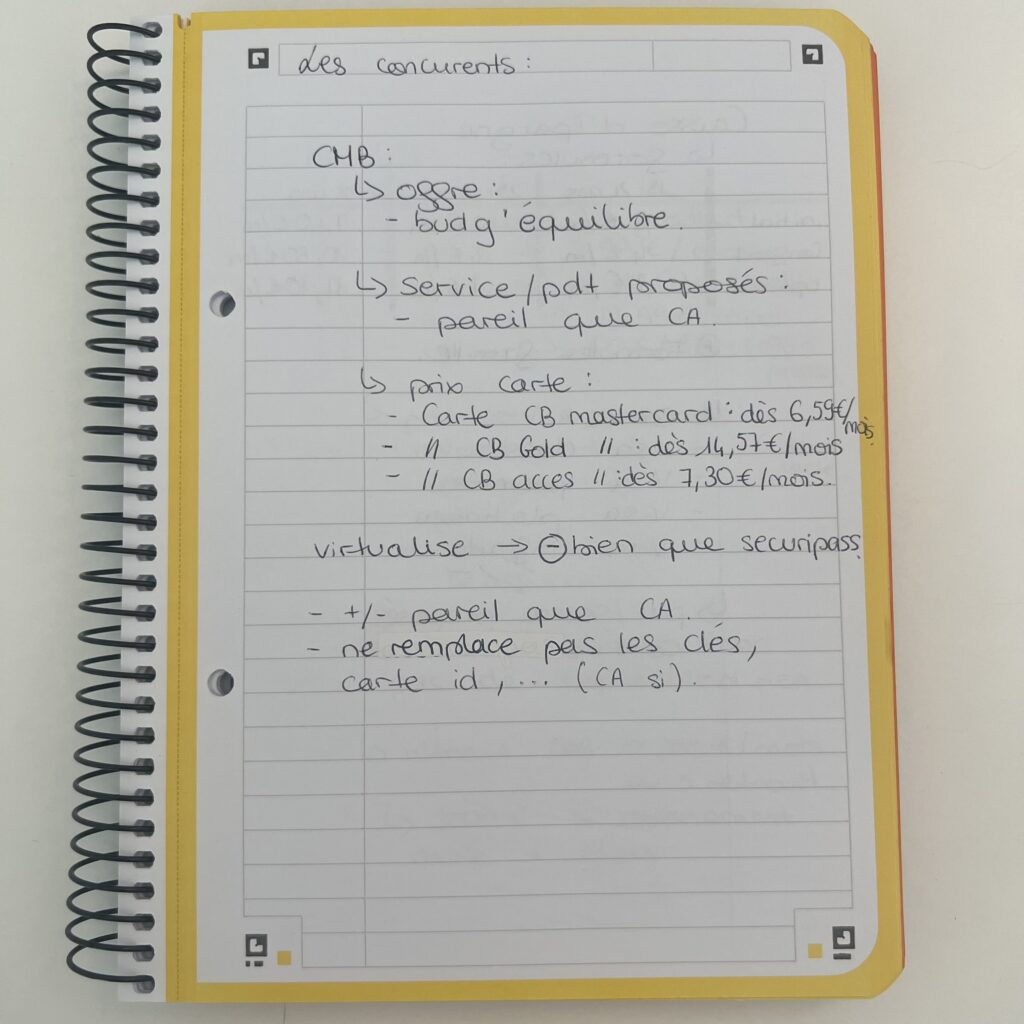 Les concurents :
CMB :
↳ oggre :
- budg'équilibre.
↳ service/pdt proposés :
- pareil que CA.
↳ prix carte :
- Carte CB mastercard : dès 6,59€/mois
- // CB Gold // : dès 14,57€/mois
- // CB acces // : dès 7,30€/mois.
virtualise → ⊖ bien que securipass.
- +/- pareil que CA.
- ne remplace pas les clés,
carte id, ... (CA si).